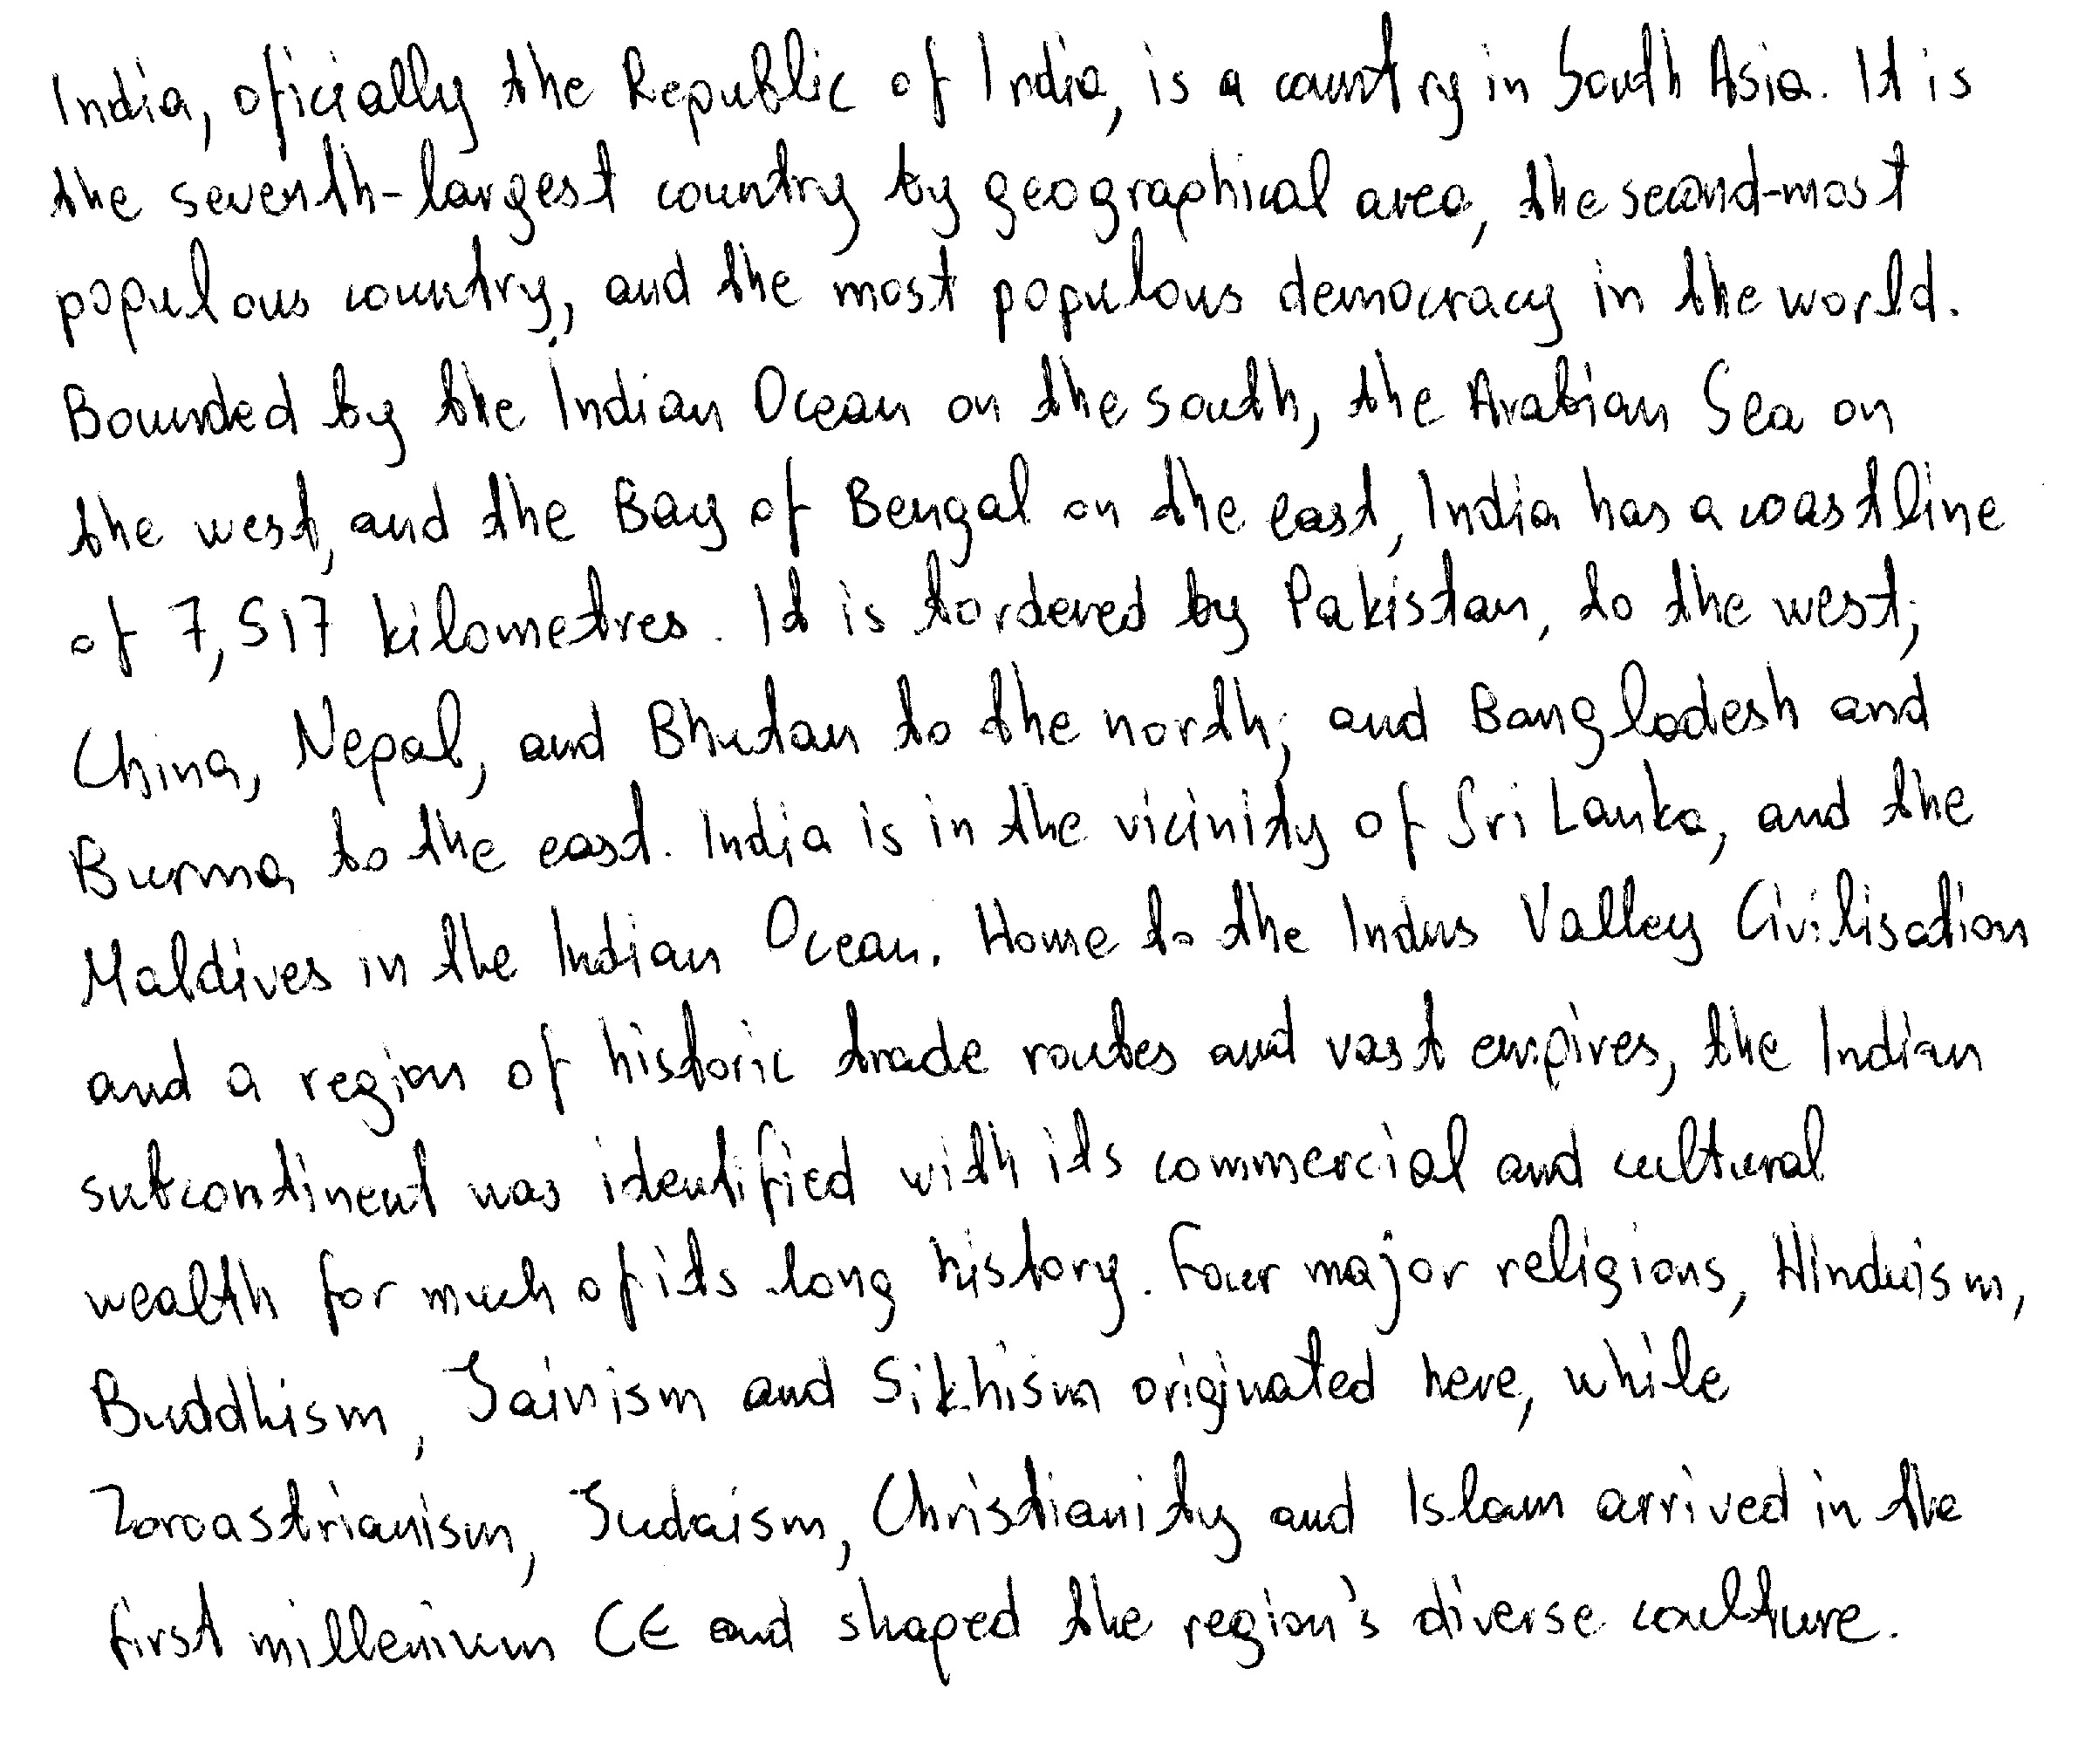 India, oficially the Republic of India, is a country in South Asia. It is
the seventh-largest country by geographical area, the second-most
populous country, and the most populous democracy in the world.
Bounded by the Indian Ocean on the south, the Arabian Sea on
the west, and the Bay of Bengal on the east, India has a coastline
of 7,517 kilometres. It is bordered by Pakistan, to the west;
China, Nepal, and Bhutan to the north; and Bangladesh and
Burma to the east. India is in the vicinity of Sri Lanka, and the
Maldives in the Indian Ocean. Home to the Indus Valley Civilisation
and a region of historic trade routes and vast empires, the Indian
subcontinent was identified with its commercial and cultural
wealth for much of its long history. Four major religions, Hinduism,
Buddhism, Jainism and Sikhism originated here, while
Zoroastrianism, Judaism, Christianity and Islam arrived in the
first millenium CE and shaped the region's diverse coulture.